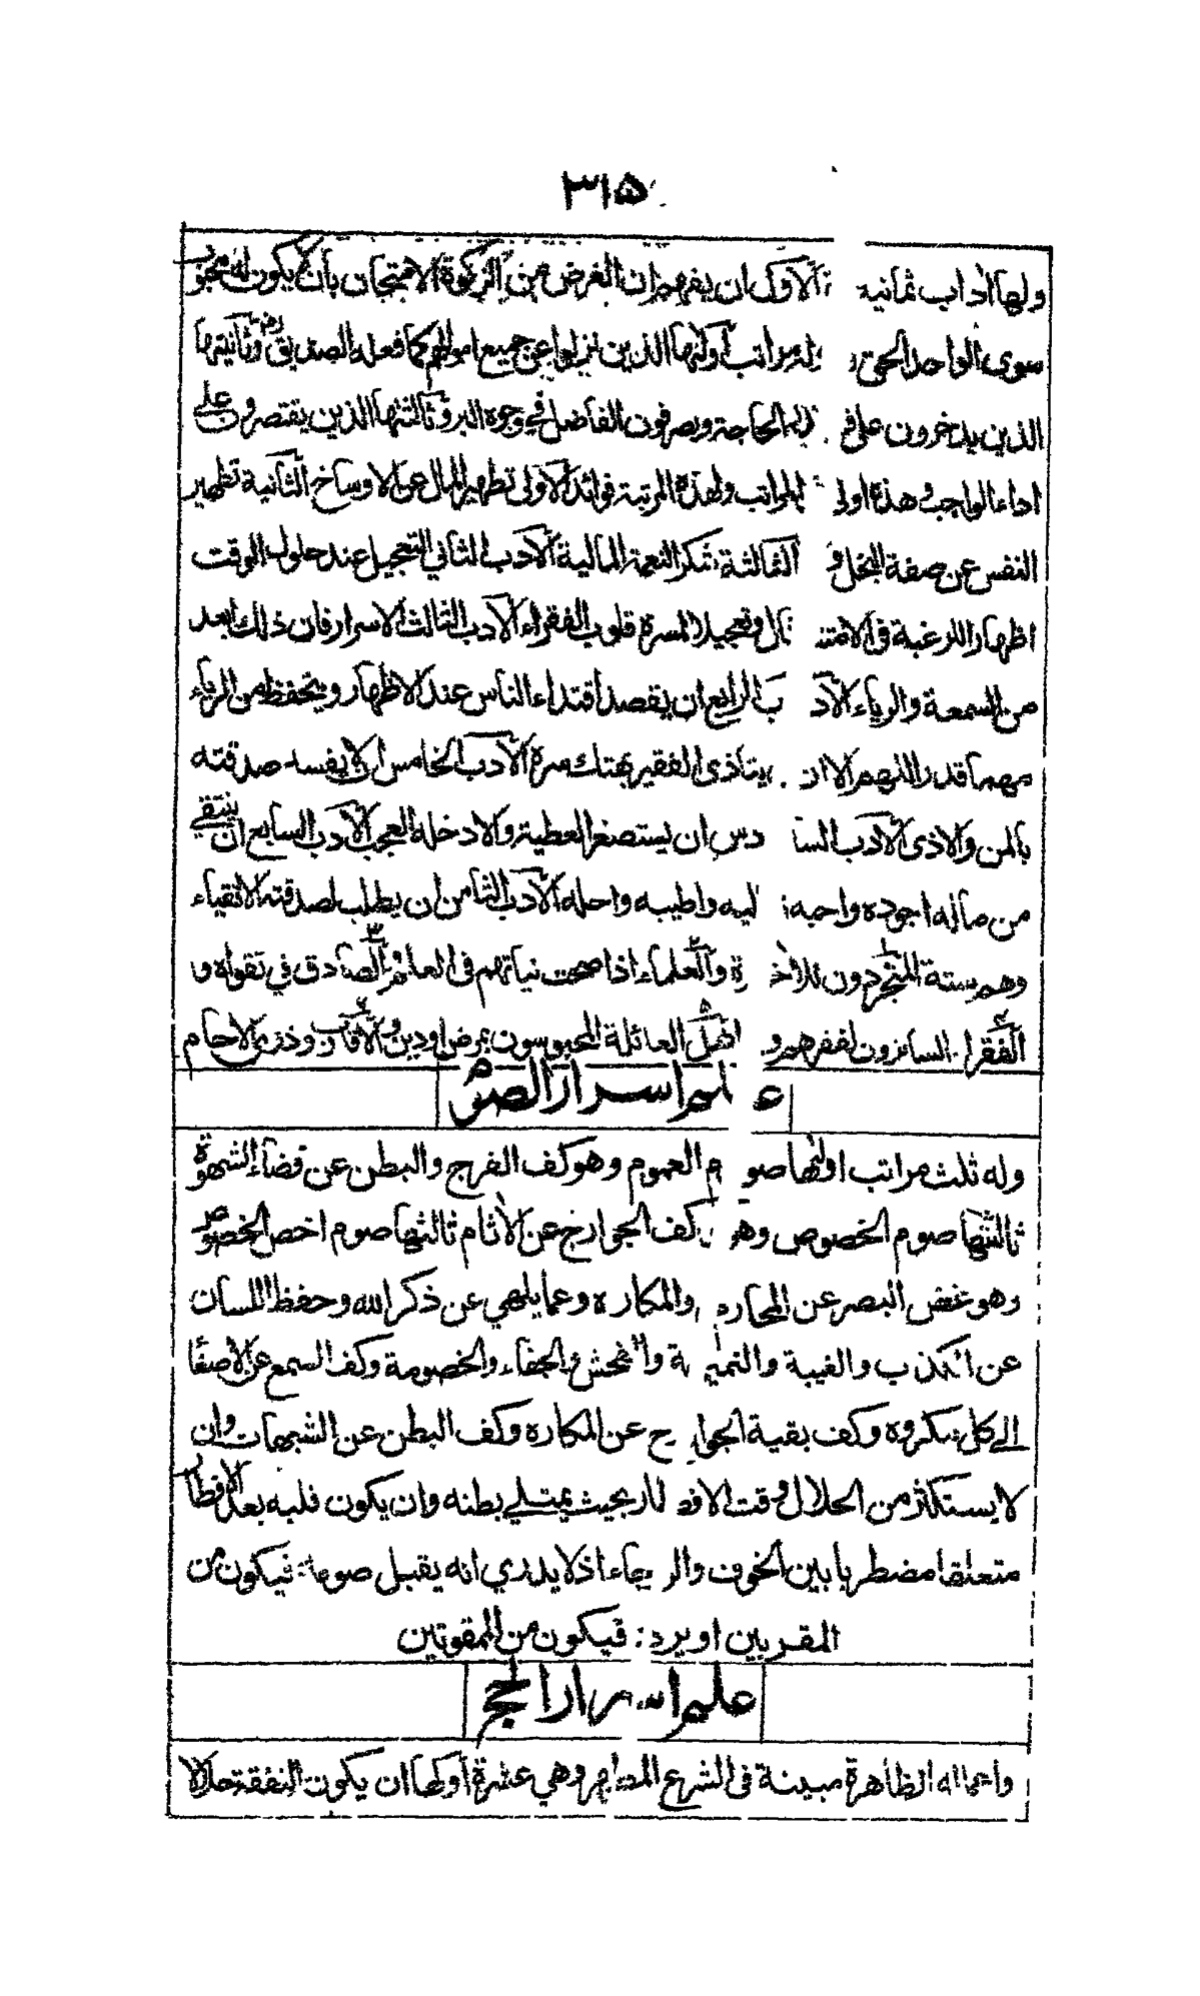 ٣١٥
ولها آداب ثمانية الاول ان يفهم ان الغرض من الزكوة الامتحان بان لا يكون له محبوب
سوى الواحد الحق وله مراتب اولٰها الذين نزلوا عن جميع اموالهم كما فعله الصديق رض وثانيتها
الذين يدخرون على قدر الحاجة ويصرفون الفاضل في وجوه البر وثالثتها الذين يقتصرون على
اداء الواجب وهذه اولى المراتب ولهذه المرتبة فوائد الاولى تطهير المال عن الاوساخ الثانية تطهير
النفس عن صفة البخل و الثالثة شكر النعمة المالية الادب الثاني التعجيل عند حلول الوقت
اظهارا للرغبة في الامتثال وتعجيلا لمسرة قلوب الفقراء الادب الثالث الاسرار فان ذلك ابعد
من السمعة والرياء الادب الرابع ان يقصد اقتداء الناس عند الاظهار ويتحفظ من الرياء
مهما قدر اللهم الا ان يتاذى الفقير بهتك سره الادب الخامس ان لا يفسد صدقته
بالمن والاذى الادب السادس ان يستصغر العطية والا دخله العجب الادب السابع ان ينتقي
من ماله اجوده واحبه اليه واطيبه واحله الادب الثامن ان يطلب لصدقته الاتقياء
وهم ستة المتجردون للاخرة والعلماء اذا صحت نياتهم في العلم والصادق في تقواه و
الفقراء الساترون لفقرهم و اهل العائلة المحبوسون بمرض او دين والاقارب وذوي الارحام
علم اسرار الصوم
وله ثلث مراتب اولٰها صوم العموم وهو كف الفرج والبطن عن قضاء الشهوة
ثالثتها صوم الخصوص وهو كف الجوارح عن الآثام ثالثها صوم اخص الخصوص
وهو غض البصر عن المحارم والمكاره وعما يلهي عن ذكر الله وحفظ اللسان
عن الكذب والغيبة والنميمة والفحش والجفاء والخصومة وكف السمع عن الاصغاء
الى كل مكروه وكف بقية الجوارح عن المكاره وكف البطن عن الشبهات وان
لا يستكثر من الحلال وقت الافطار بحيث يمتلي بطنه وان يكون قلبه بعد الافطار
متعلقا مضطربا بين الخوف والرجاء اذ لا يدري انه يقبل صومه فيكون من
المقربين او يرد فيكون من الممقوتين
علم اسرار الحج
واعماله الظاهرة مبينة في الشرع المطهر وهي عشرة اولها ان يكون النفقة حلالا